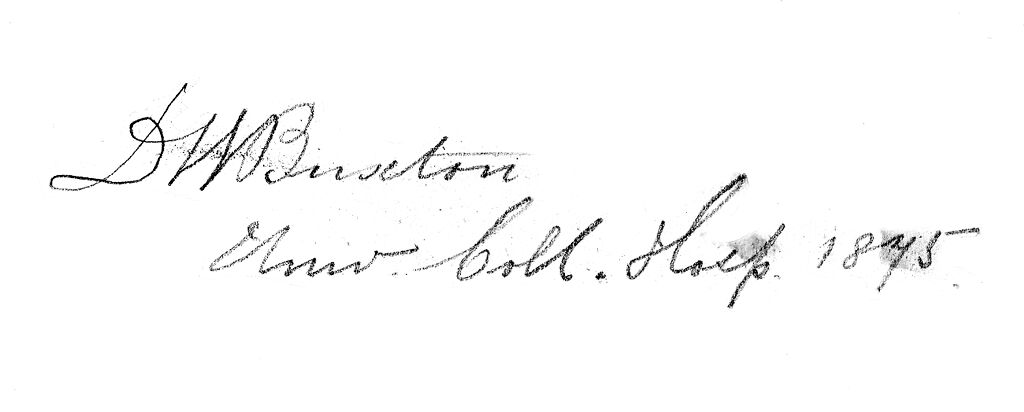 D W Buxton
Univ. Coll. Hosp. 1875.